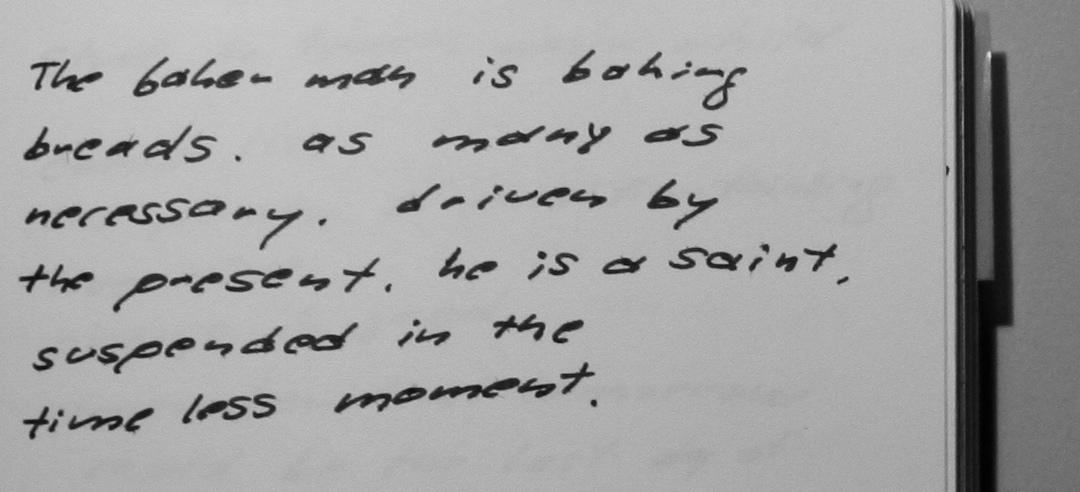 The baker man is baking
breads. as many as
necessary. driven by
the present. he is a saint,
suspended in the
time less moment.